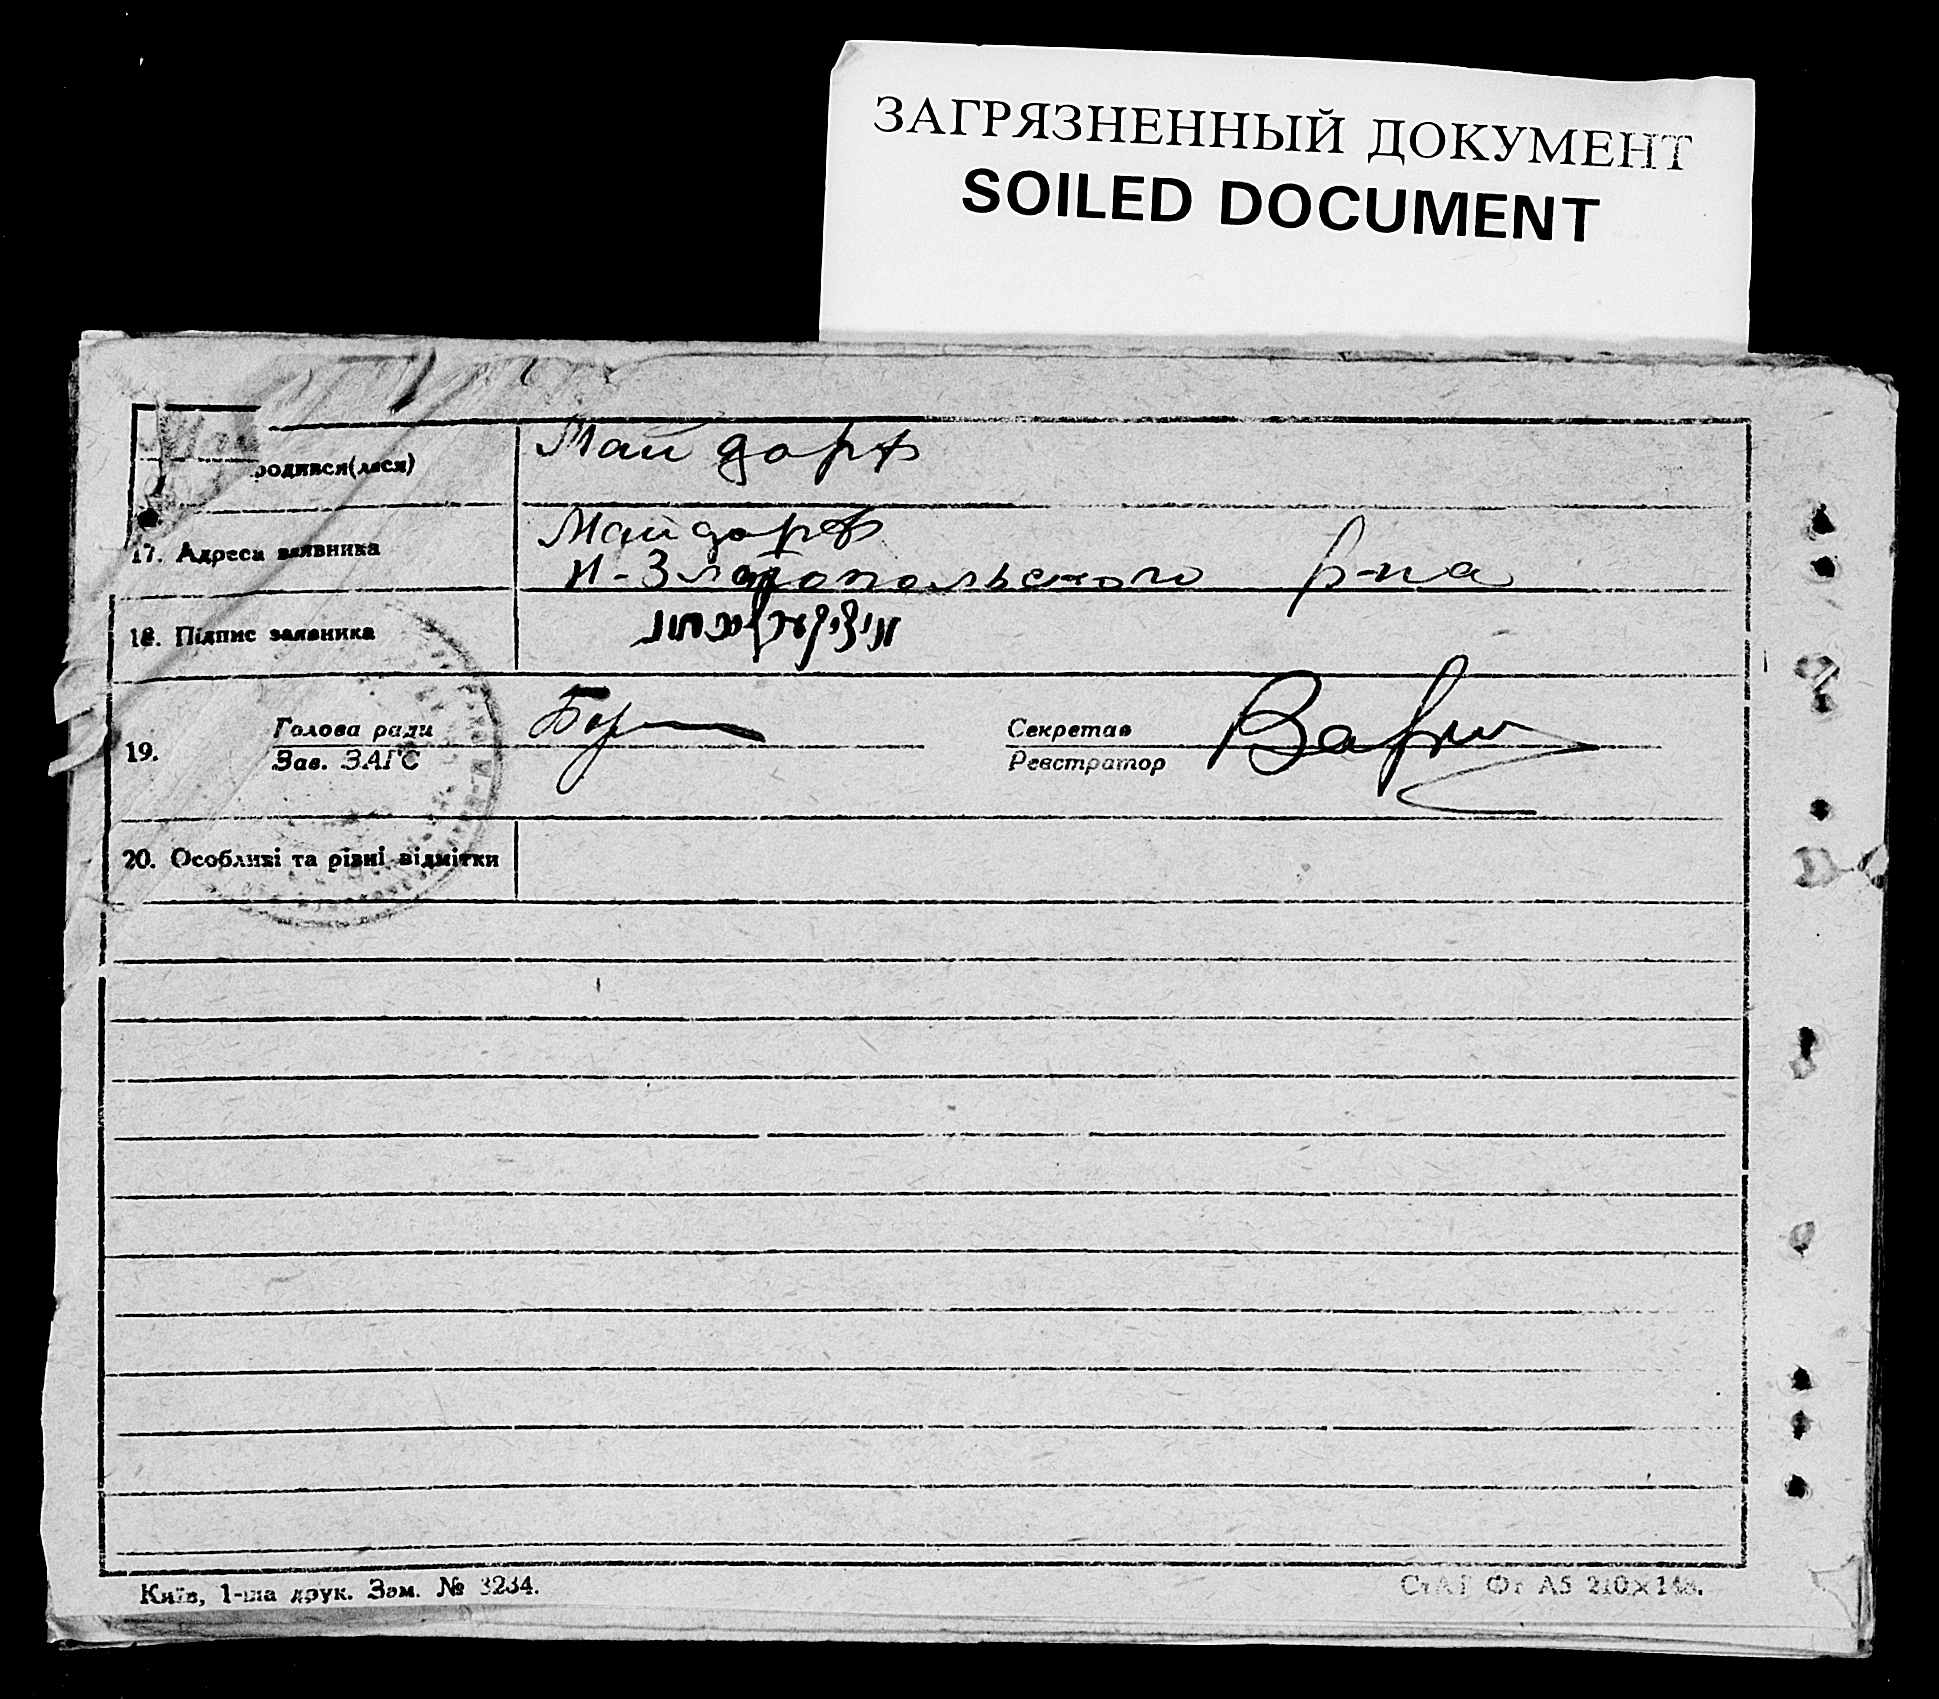 ЗАГРЯЗНЕННЫЙ ДОКУМЕНТ
SOILED DOCUMENT
родився(лася)
Майдорф
17. Адреса заявника
Майдорф
Н-Златопольского р-на
18. Підпис заявника
19.
Голова ради
Зав. ЗАГС
Секретар
Реєстратор
20. Особливі та різні відмітки
Київ, 1-ша друк. Зам. № 3234.
СтАГ Фт А5 210×148.